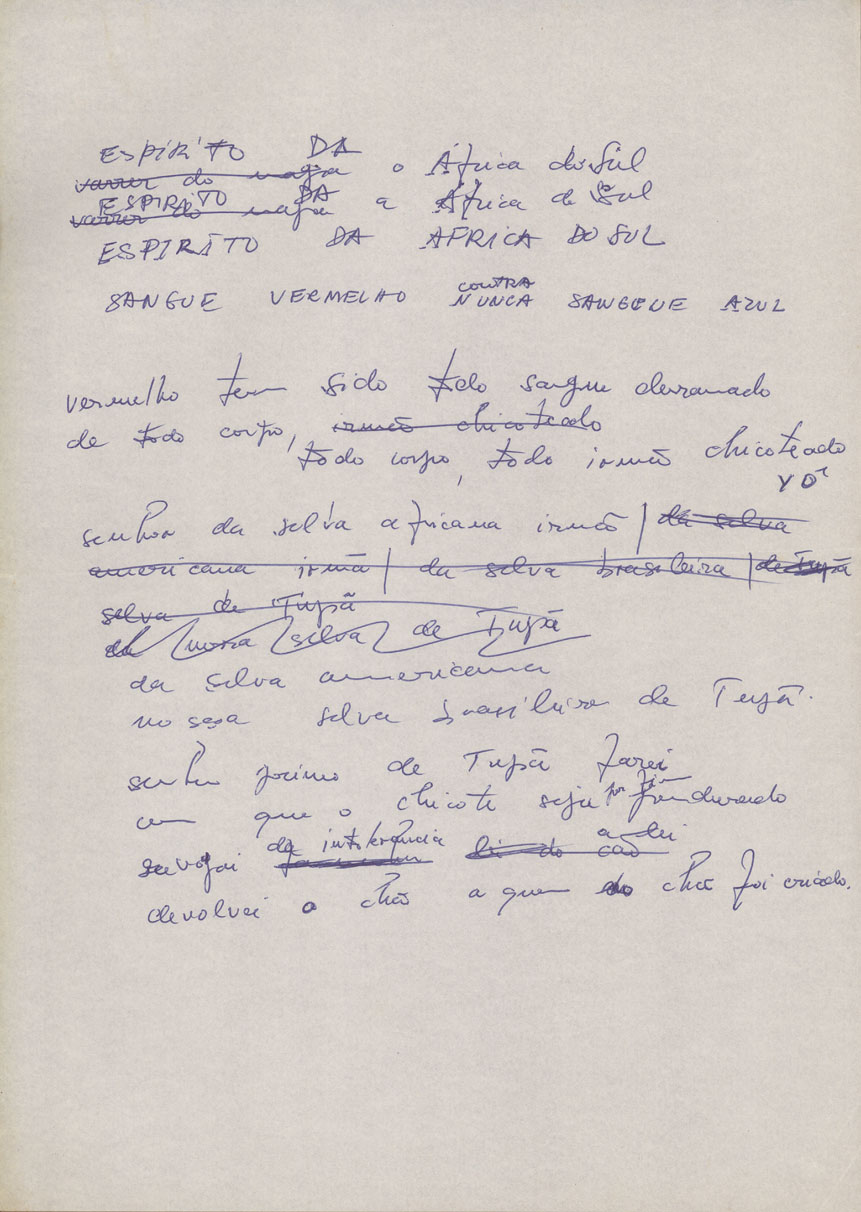 ESPÍRITO DA
varrer do mapa o África do Sul
ESPÍRITO DA
varrer do mapa a África do Sul
ESPIRÍTO DA AFRICA DO SUL
CONTRA
SANGUE VERMELHO NUNCA SANGUE AZUL
vermelho tem sido todo sangue derramado
de todo corpo, irmão chicoteado
todo corpo, todo irmão chicoteado
senhor da selva africana irmã / da selva
americana irmã / da selva brasileira / de Tupã
selva de Tupã
da nossa selva de Tupã
da selva americana
nossa selva brasileira de Tupã.
senhor primo de Tupã fazei
com que o chicote seja por fim pendurado
revogai da intolerância a lei
lei do cão
devolvei o chão a quem do chão foi criado.